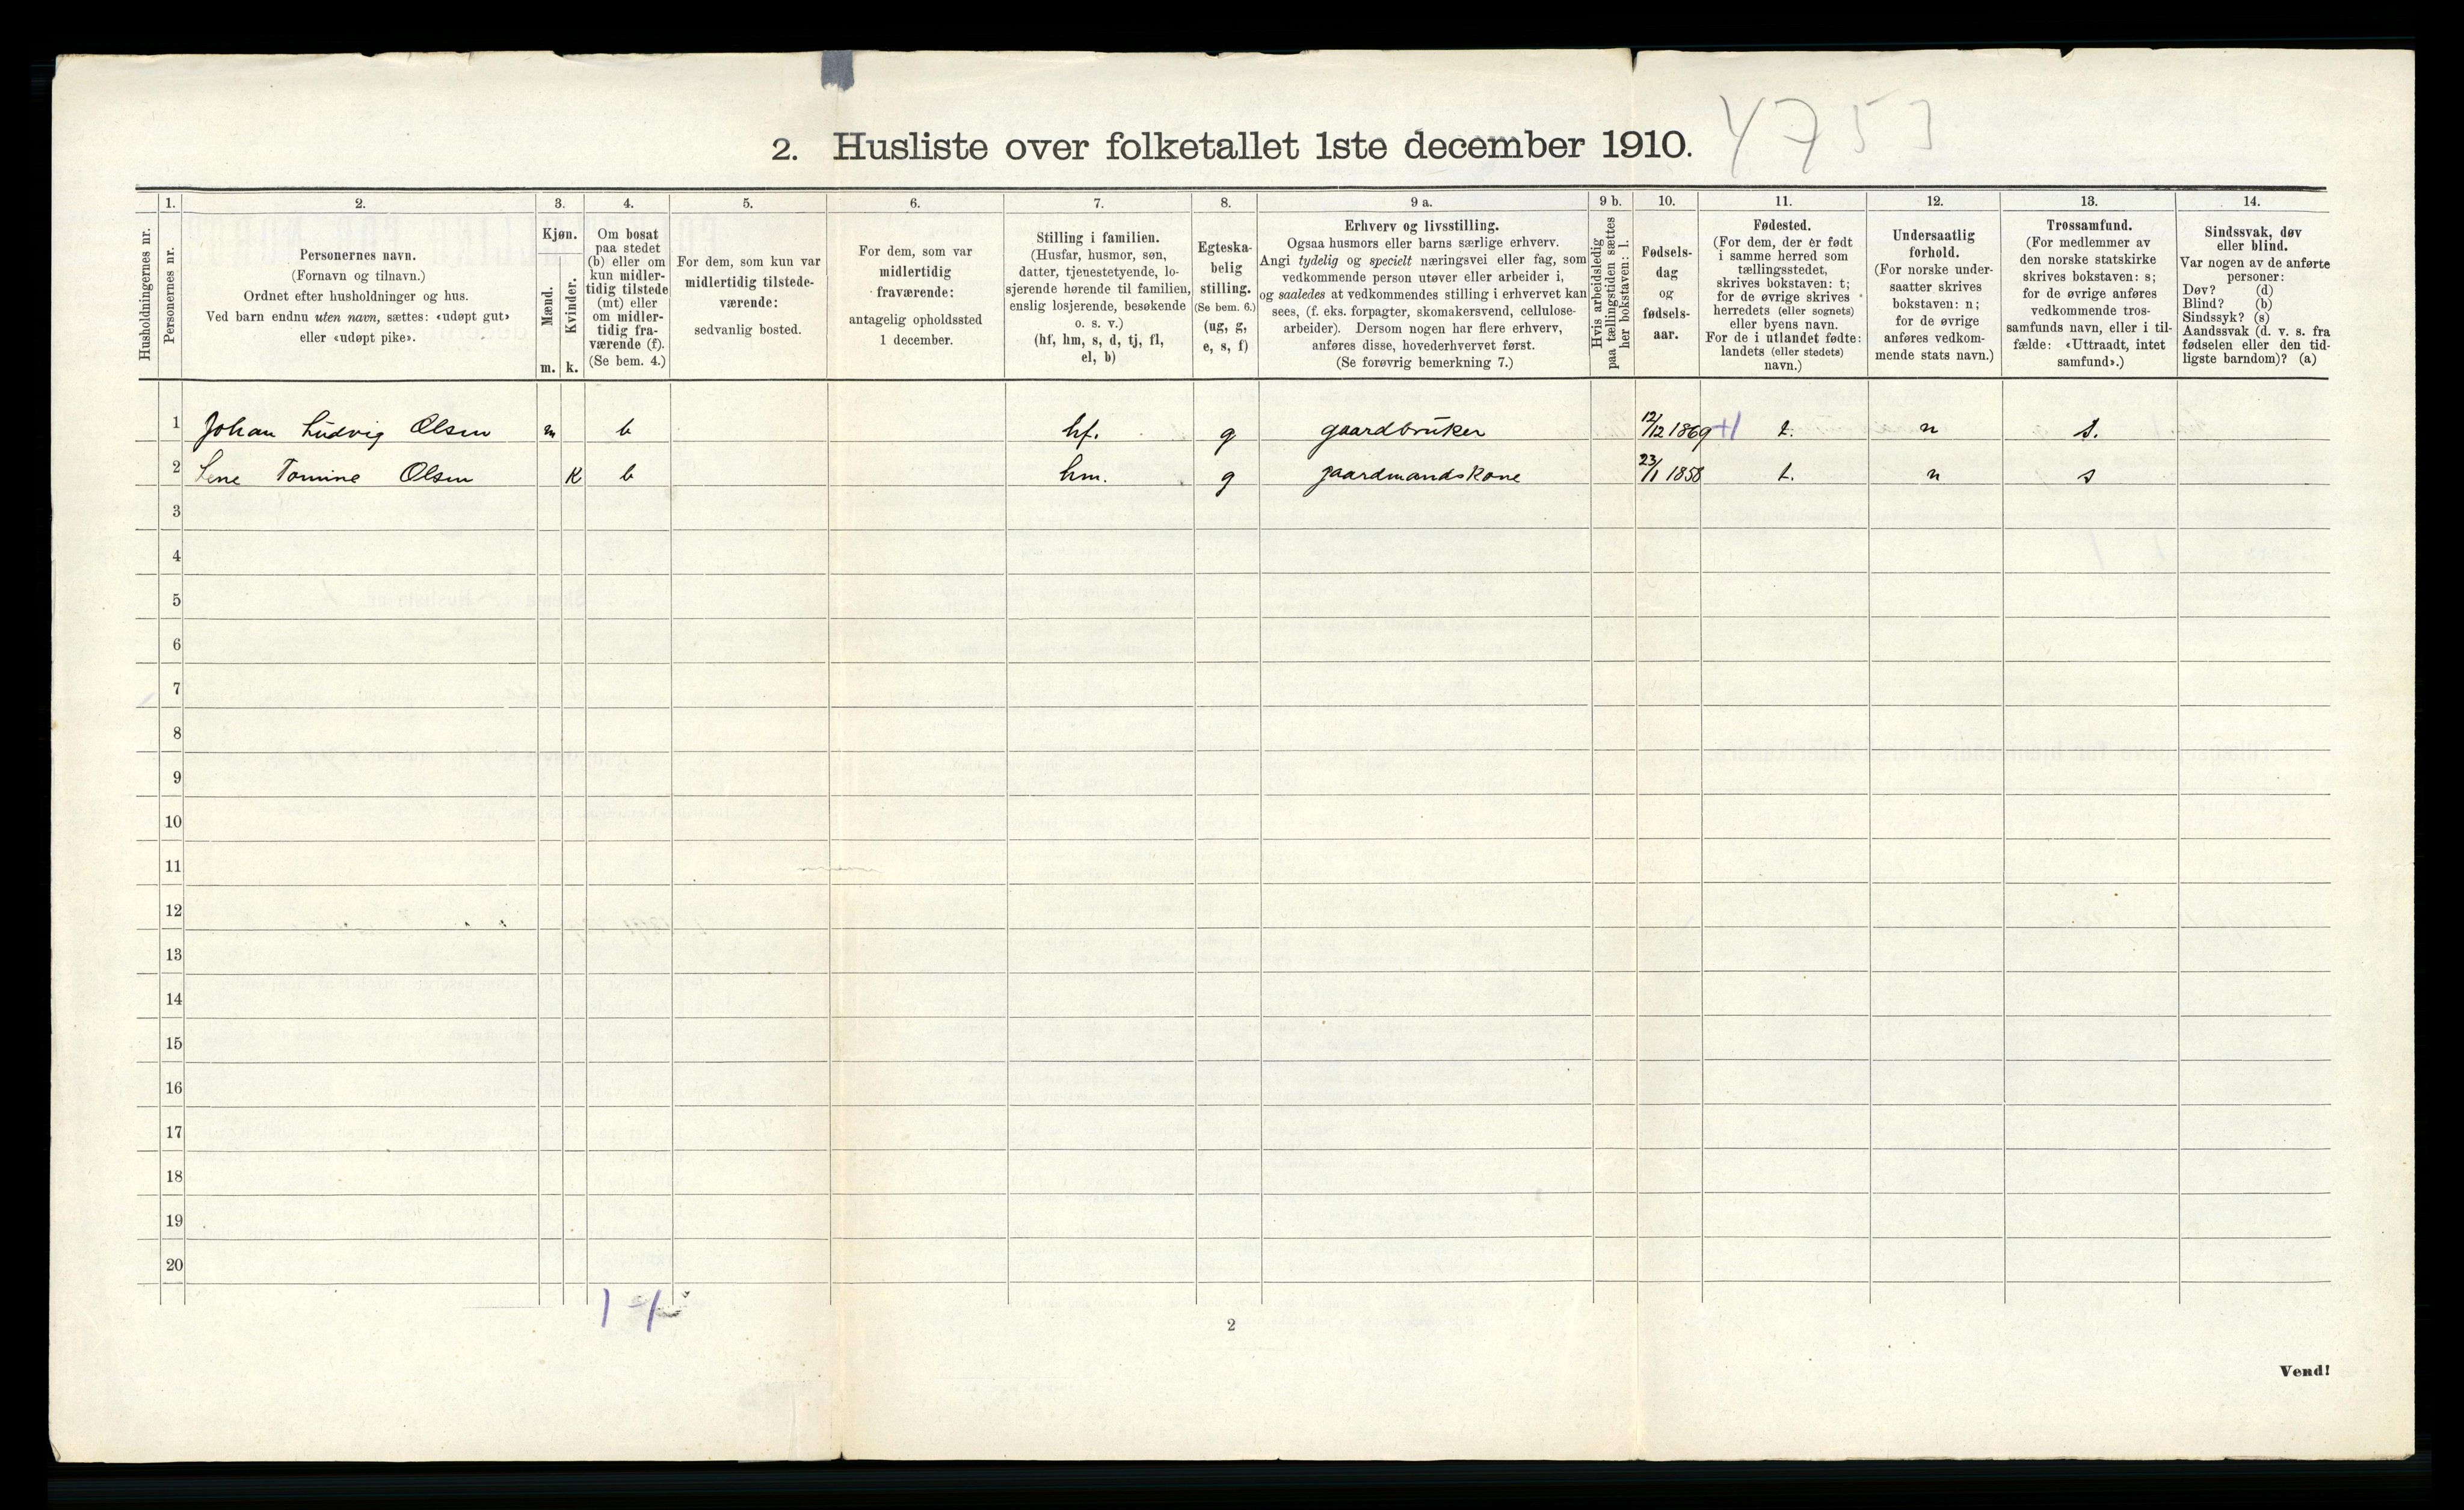 4753
2. Husliste over folketallet 1ste december 1910.
Husholdningernes nr.
1.
Personernes nr.
2.
Personernes navn.
(Fornavn og tilnavn.)
Ordnet efter husholdninger og hus.
Ved barn endnu uten navn, sættes: «udøpt gut»
eller «udøpt pike».
3.
Kjøn.
Mænd.
Kvinder.
m. k.
4.
Om bosat
paa stedet
(b) eller om
kun midler-
tidig tilstede
(mt) eller
om midler-
tidig fra-
værende (f).
(Se bem. 4.)
5.
For dem, som kun var
midlertidig tilstede-
værende:
sedvanlig bosted.
6.
For dem, som var
midlertidig
fraværende:
antagelig opholdssted
1 december.
7.
Stilling i familien.
(Husfar, husmor, søn,
datter, tjenestetyende, lo-
sjerende hørende til familien,
enslig losjerende, besøkende
o. s. v.)
(hf, hm, s, d, tj, fl,
el, b)
8.
Egteska-
belig
stilling.
(Se bem. 6.)
(ug, g,
e, s, f)
9 a.
Erhverv og livsstilling.
Ogsaa husmors eller barns særlige erhverv.
Angi tydelig og specielt næringsvei eller fag, som
vedkommende person utøver eller arbeider i,
og saaledes at vedkommendes stilling i erhvervet kan
sees, (f. eks. forpagter, skomakersvend, cellulose-
arbeider). Dersom nogen har flere erhverv,
anføres disse, hovederhvervet først.
(Se forøvrig bemerkning 7.)
9 b.
Hvis arbeidsledig
paa tællingstiden sættes
her bokstaven: l.
10.
Fødsels-
dag
og
fødsels-
aar.
11.
Fødested.
(For dem, der er født
i samme herred som
tællingsstedet,
skrives bokstaven: t;
for de øvrige skrives
herredets (eller sognets)
eller byens navn.
For de i utlandet fødte:
landets (eller stedets)
navn.)
12.
Undersaatlig
forhold.
(For norske under-
saatter skrives
bokstaven: n;
for de øvrige
anføres vedkom-
mende stats navn.)
13.
Trossamfund.
(For medlemmer av
den norske statskirke
skrives bokstaven: s;
for de øvrige anføres
vedkommende tros-
samfunds navn, eller i til-
fælde: «Uttraadt, intet
samfund».)
14.
Sindssvak, døv
eller blind.
Var nogen av de anførte
personer:
Døv? (d)
Blind? (b)
Sindssyk? (s)
Aandssvak (d. v. s. fra
fødselen eller den tid-
ligste barndom)? (a)
1 Johan Ludvig Olsen m b hf. g gaardbruker 12/12 1869 +1 t. n s.
2 Lene Tomine Olsen k b hm. g gaardmandskone 23/1 1858 t. n s
3
4
5
6
7
8
9
10
11
12
13
14
15
16
17
18
19
20
1-1
2
Vend!